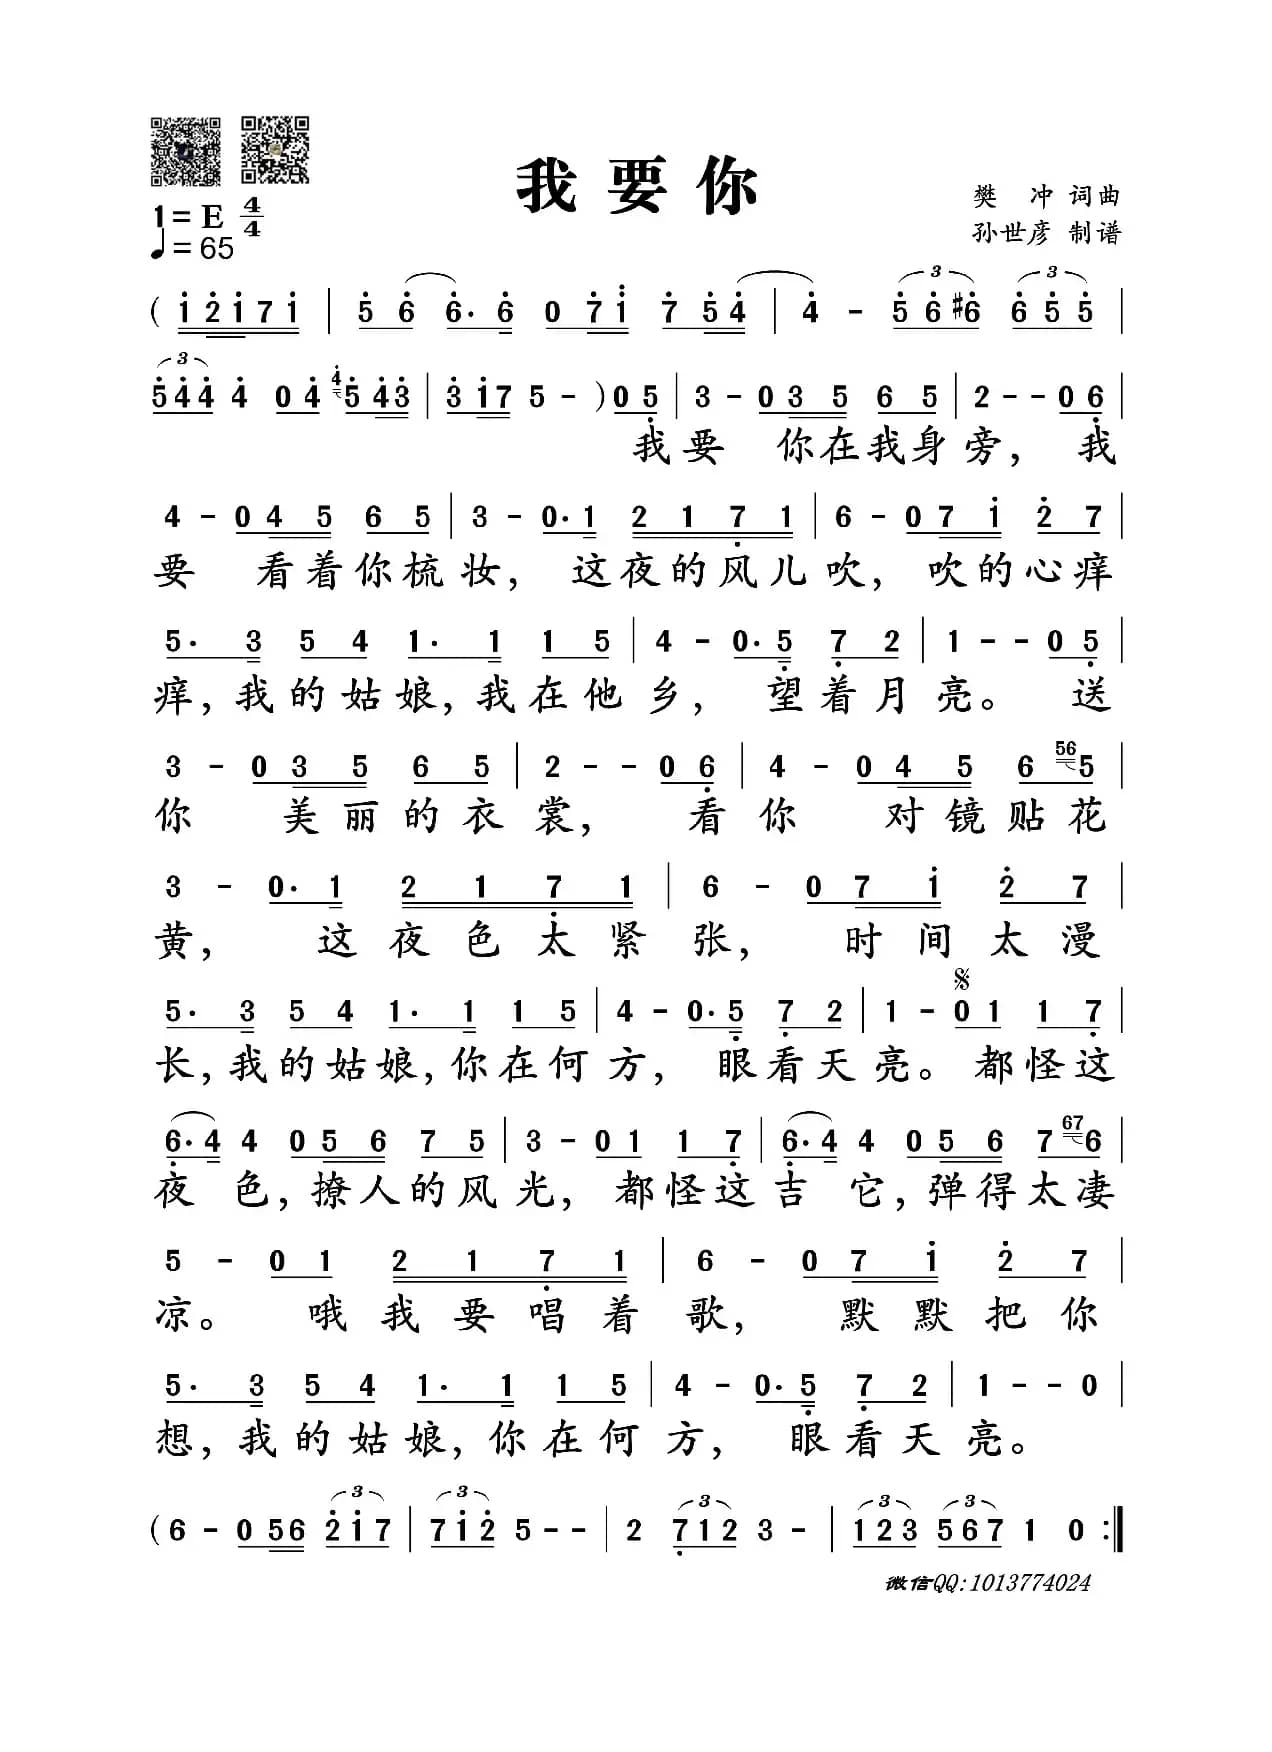 我要你
樊 冲 词曲
孙世彦 制谱
1=E 4/4
♩=65
( 1̇ 2̇ 1̇ 7 1̇ | 5 6̇ 6̇· 6̇ 0 7̇ 1̇ 7̇ 5̇ 4̇ | 4̇ - 5̇ 6̇ #6̇ 6̇ 5̇ 5̇ |
5̇ 4̇ 4̇ 4̇ 0 4̇ 4̇ 5̇ 4̇ 3̇ | 3̇ 1̇ 7 5 - ) 0 5̣ | 3 - 0 3 5 6 5 | 2 - - 0 6̣ |
我要 你在我身旁， 我
4 - 0 4 5 6 5 | 3 - 0· 1 2 1 7̣ 1 | 6 - 0 7 1̇ 2̇ 7 |
要 看着你梳妆， 这夜的风儿吹， 吹的心痒
5· 3 5 4 1· 1 1 5 | 4 - 0· 5̣ 7̣ 2 | 1 - - 0 5̣ |
痒，我的姑娘，我在他乡， 望着月亮。 送
3 - 0 3 5 6 5 | 2 - - 0 6̣ | 4 - 0 4 5 6 56 5 |
你 美丽的衣裳， 看你 对镜贴花
3 - 0· 1 2 1 7̣ 1 | 6 - 0 7 1̇ 2̇ 7 |
黄， 这夜色太紧张， 时间太漫
5· 3 5 4 1· 1 1 5 | 4 - 0· 5̣ 7̣ 2 | 1 - 𝄋 0 1 1 7̣ |
长，我的姑娘，你在何方， 眼看天亮。都怪这
6̣· 4 4 0 5 6 7 5 | 3 - 0 1 1 7̣ | 6̣· 4 4 0 5 6 7 67 6 |
夜 色，撩人的风光， 都怪这吉 它，弹得太凄
5 - 0 1 2 1 7̣ 1 | 6 - 0 7 1̇ 2̇ 7 |
凉。 哦我要唱着歌， 默默把你
5· 3 5 4 1· 1 1 5 | 4 - 0· 5̣ 7̣ 2 | 1 - - 0 |
想，我的姑娘，你在何方， 眼看天亮。
( 6 - 0 5 6 2̇ 1̇ 7 | 7 1̇ 2̇ 5 - - | 2 7̣ 1 2 3 - | 1 2 3 5 6 7 1 0 :‖
微信QQ:1013774024